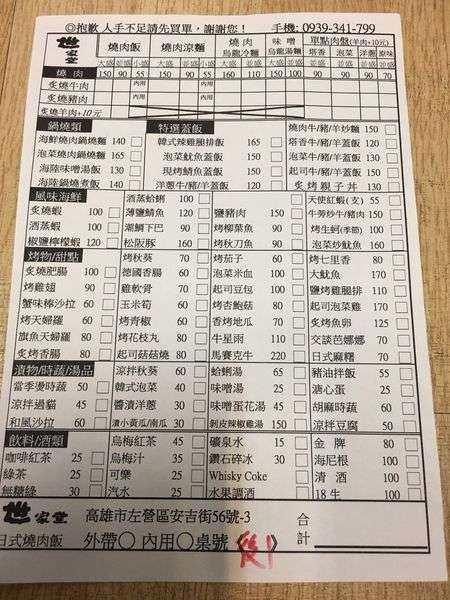 ◎抱歉 人手不足請先買單，謝謝您！ 手機：0939-341-799
世家堂 燒肉飯 燒肉涼麵 燒肉烏龍冷麵 味噌烏龍湯麵 單點肉盤(羊肉+10元)
大盛 並盛 小盛 大盛 並盛 小盛 大盛 並盛 大盛 並盛 塔香 泡菜 洋蔥 原味
燒肉 150 90 55 150 90 55 160 110 150 100 90 90 90 70
炙燒牛肉 內用 內用
炙燒豬肉 內用 內用
炙燒羊肉+10元
鍋燒類 特選蓋飯 燒肉牛/豬/羊炒麵 150
海鮮燒肉鍋燒麵 140 韓式辣雞腿排飯 165 塔香牛/豬/羊蓋飯 120
泡菜燒肉鍋燒麵 165 泡菜魷魚蓋飯 150 泡菜牛/豬/羊蓋飯 120
海陸味噌湯飯 130 現烤魷魚蓋飯 150 起司牛/豬/羊蓋飯 120
海陸鍋燒煮飯 130 洋蔥牛/豬/羊蓋飯 120 炙烤親子丼 130
風味海鮮 酒蒸蛤蜊 100 天使紅蝦(支) 55
炙燒蝦 100 薄鹽鯖魚 120 鹽豬肉 150 牛蒡炒牛/豬肉 150
酒蒸蝦 100 潮鯛下巴 90 烤柳葉魚 90 烤生蚵(季節) 100
椒鹽檸檬蝦 120 松阪豚 160 烤秋刀魚 90 泡菜炒魷魚 160
烤物/甜點 烤秋葵 70 烤茄子 60 烤七里香 80
炙燒肥腸 100 德國香腸 60 泡菜米血 60 大魷魚 170
烤雞翅 90 雞軟骨 70 起司豆包 100 鹽烤雞腿排 110
蟹味棒沙拉 60 玉米筍 60 烤杏鮑菇 80 起司泡菜雞 150
烤天婦羅 60 烤青椒 60 香烤地瓜 70 炙烤魚卵 125
旗魚天婦羅 80 烤花枝丸 90 牛星雨 110 交談芭娜娜 70
炙烤香腸 80 起司菇菇燒 80 馬賽克牛 220 日式麻糬 70
漬物/時蔬/湯品 涼拌秋葵 50 蛤蜊湯 65 豬油拌飯 55
當季燙時蔬 50 韓式泡菜 40 味噌湯 35 溏心蛋 25
涼拌過貓 45 醬漬洋蔥 30 味噌蛋花湯 40 胡麻時蔬 60
和風沙拉 60 漬小黃瓜/南瓜 30 剝皮辣椒雞湯 150 涼拌豆腐 50
飲料/酒類 烏梅紅茶 45 礦泉水 15 金牌 80
咖啡紅茶 25 烏梅汁 35 鑽石碎冰 30 海尼根 100
綠茶 25 可樂 25 Whisky Coke 清酒 200
無糖綠 30 汽水 25 水果調酒 18生 100
世家堂 高雄市左營區安吉街56號-3 合計
日式燒肉飯 外帶○ 內用○ 桌號《後1》